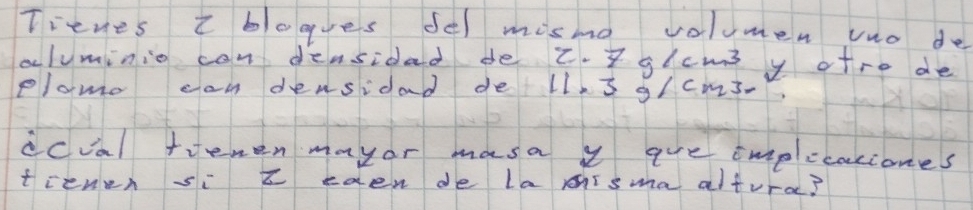 Tienes 2 bloques del mismo volumen uno de
aluminio con densidad de 2.7 g/cm3 y otro de
Plomo con densidad de 11.3 g/cm3.
¿cúal tienen mayor masa y que implicaciones
tienen si 2 caen de la misma altura?